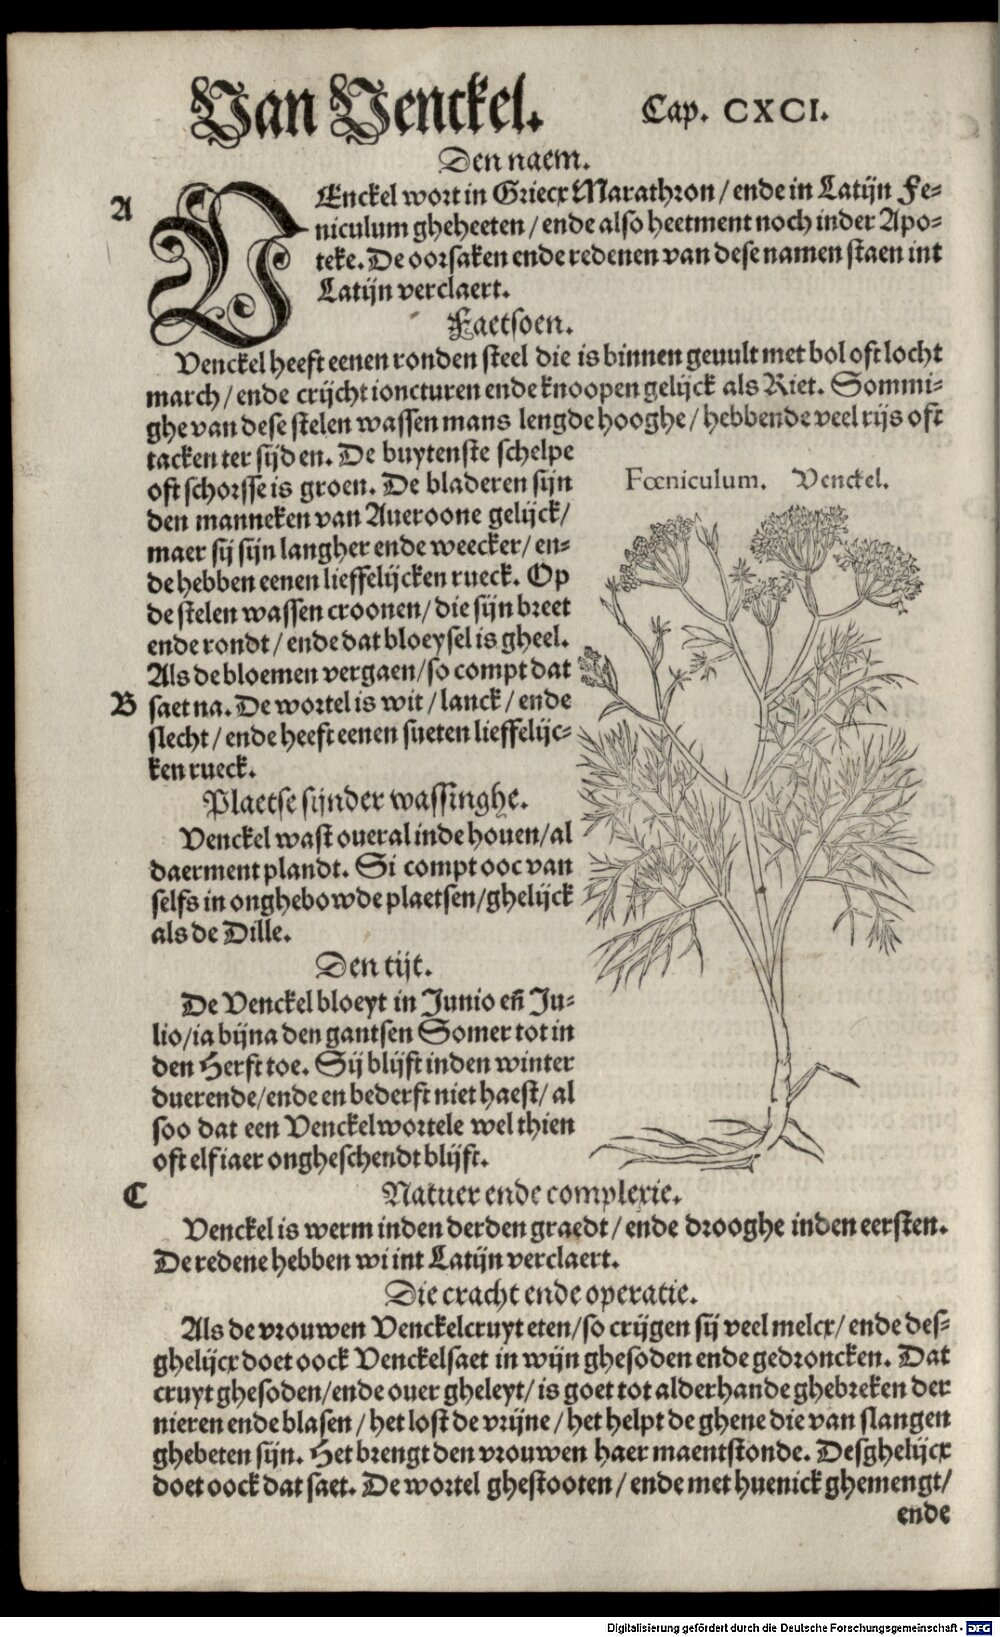 Van Venckel. Cap. CXCI.
Den naem.
A
VEnckel wort in Griecx Marathron/ ende in Latijn Fe=
niculum gheheeten/ ende also heetment noch inder Apo=
teke. De oorsaken ende redenen van dese namen staen int
Latijn verclaert.
Faetsoen.
Venckel heeft eenen ronden steel die is binnen geuult met bol oft locht
march/ ende crijcht ioncturen ende knoopen gelijck als Riet. Sommi=
ghe van dese stelen wassen mans lengde hooghe/ hebbende veel rijs oft
tacken ter sijden. De buytenste schelpe
oft schorsse is groen. De bladeren sijn
den manneken van Aueroone gelijck/
maer sij sijn langher ende weecker/ en=
de hebben eenen lieffelijcken rueck. Op
de stelen wassen croonen/ die sijn breet
ende rondt/ ende dat bloeysel is gheel.
Als de bloemen vergaen/ so compt dat
B saet na. De wortel is wit/ lanck/ ende
slecht/ ende heeft eenen sueten lieffelijc=
ken rueck.
Fœniculum. Venckel.
Plaetse sijnder wassinghe.
Venckel wast oueral inde houen/ al
daerment plandt. Si compt ooc van
selfs in onghebowde plaetsen/ ghelijck
als de Dille.
Den tijt.
De Venckel bloeyt in Junio eñ Ju=
lio/ ia bijna den gantsen Somer tot in
den Herfst toe. Sij blijft inden winter
duerende/ ende en bederft niet haest/ al
soo dat een Venckelwortele wel thien
oft elf iaer ongheschendt blijft.
C
Natuer ende complexie.
Venckel is werm inden derden graedt/ ende drooghe inden eersten.
De redene hebben wi int Latijn verclaert.
Die cracht ende operatie.
Als de vrouwen Venckelcruyt eten/ so crijgen sij veel melcx/ ende des=
ghelijcx doet oock Venckelsaet in wijn ghesoden ende gedroncken. Dat
cruyt ghesoden/ ende ouer gheleyt/ is goet tot alderhande ghebreken der
nieren ende blasen/ het lost de vrijne/ het helpt de ghene die van slangen
ghebeten sijn. Het brengt den vrouwen haer maentstonde. Desghelijcx
doet oock dat saet. De wortel ghestooten/ ende met huenick ghemengt/
ende
Digitalisierung gefördert durch die Deutsche Forschungsgemeinschaft - DFG